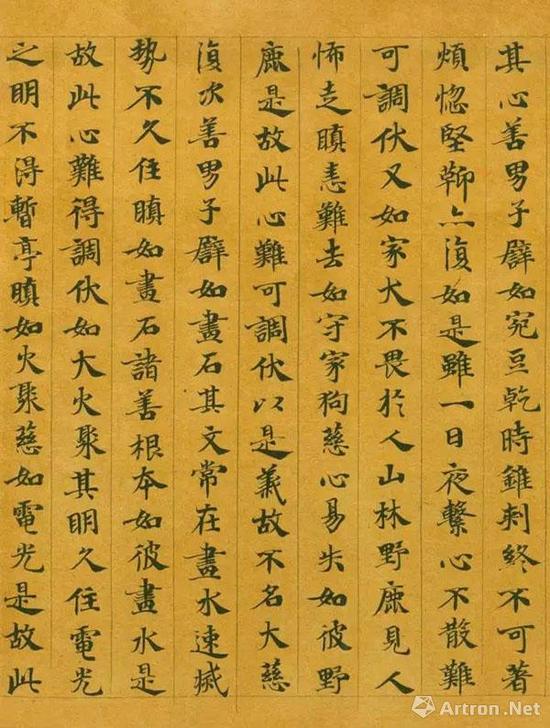 其心善男子譬如宛豆乾時錐刺終不可著
煩惚堅鞕亦復如是雖一日夜繫心不散難
可調伏又如家犬不畏於人山林野鹿見人
怖走瞋恚難去如守家狗慈心易失如彼野
鹿是故此心難可調伏以是義故不名大慈
復次善男子譬如畫石其文常在畫水速滅
勢不久住瞋如畫石諸善根本如彼畫水是
故此心難得調伏如大火聚其明久住電光
之明不得暫亭瞋如火聚慈如電光是故此
Artron.Net